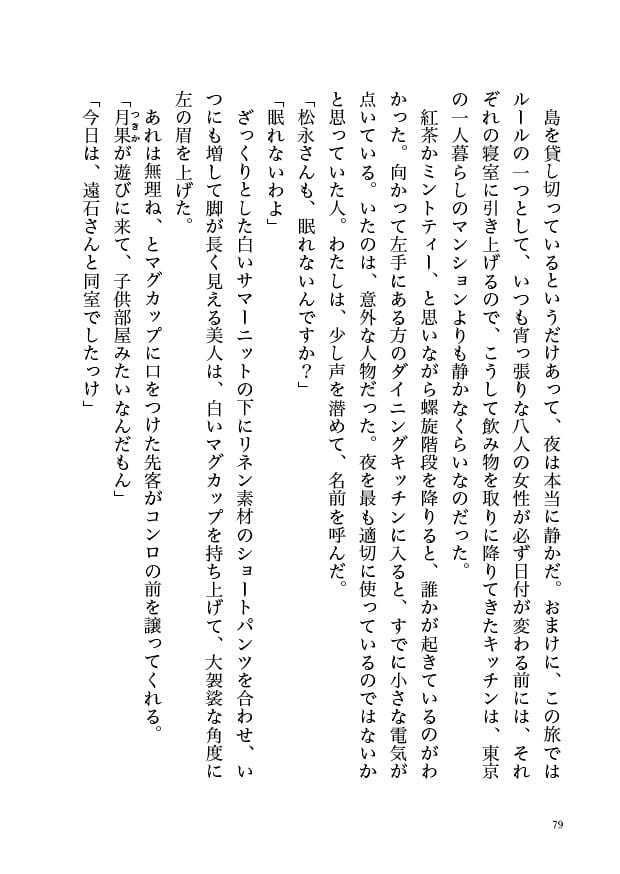 島を貸し切っているというだけあって、夜は本当に静かだ。おまけに、この旅では
ルールの一つとして、いつも宵っ張りな八人の女性が必ず日付が変わる前には、それ
ぞれの寝室に引き上げるので、こうして飲み物を取りに降りてきたキッチンは、東京
の一人暮らしのマンションよりも静かなくらいなのだった。
紅茶かミントティー、と思いながら螺旋階段を降りると、誰かが起きているのがわ
かった。向かって左手にある方のダイニングキッチンに入ると、すでに小さな電気が
点いている。いたのは、意外な人物だった。夜を最も適切に使っているのではないか
と思っていた人。わたしは、少し声を潜めて、名前を呼んだ。
「松永さんも、眠れないんですか？」
「眠れないわよ」
ざっくりとした白いサマーニットの下にリネン素材のショートパンツを合わせ、い
つにも増して脚が長く見える美人は、白いマグカップを持ち上げて、大袈裟な角度に
左の眉を上げた。
あれは無理ね、とマグカップに口をつけた先客がコンロの前を譲ってくれる。
「月果つきかが遊びに来て、子供部屋みたいなんだもん」
「今日は、遠石さんと同室でしたっけ」
79